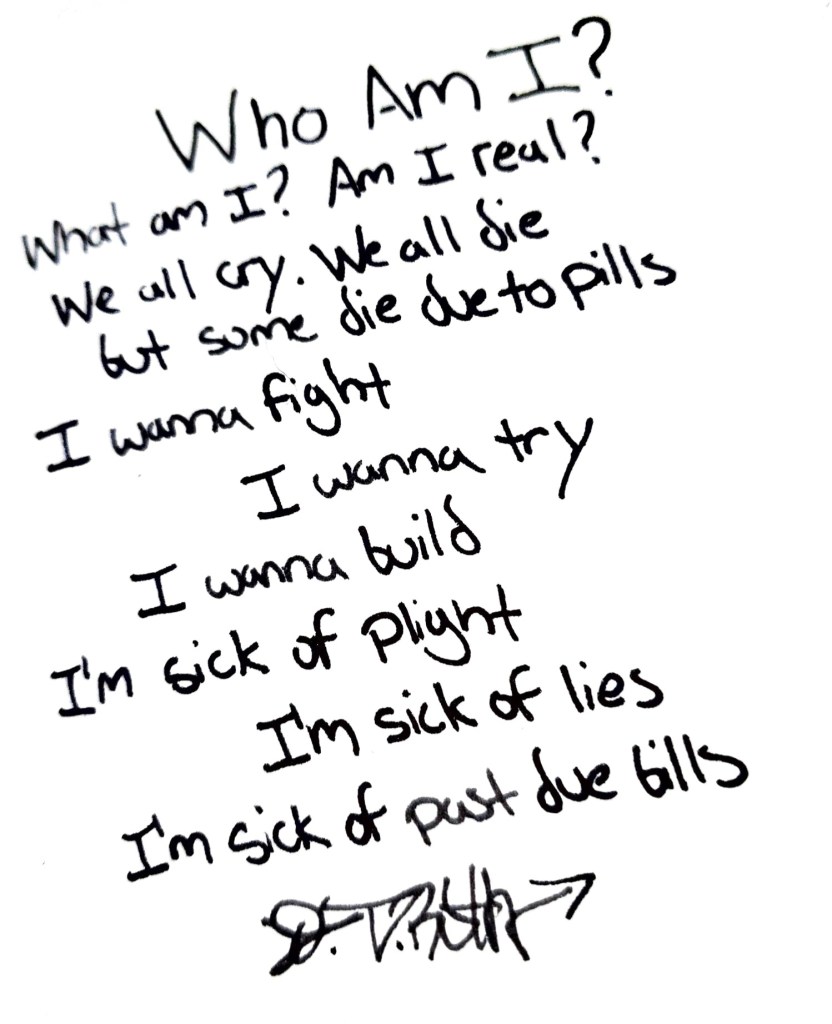 Who Am I?
What am I? Am I real?
We all cry. We all die
but some die due to pills
I wanna fight
I wanna try
I wanna build
I'm sick of plight
I'm sick of lies
I'm sick of past due bills